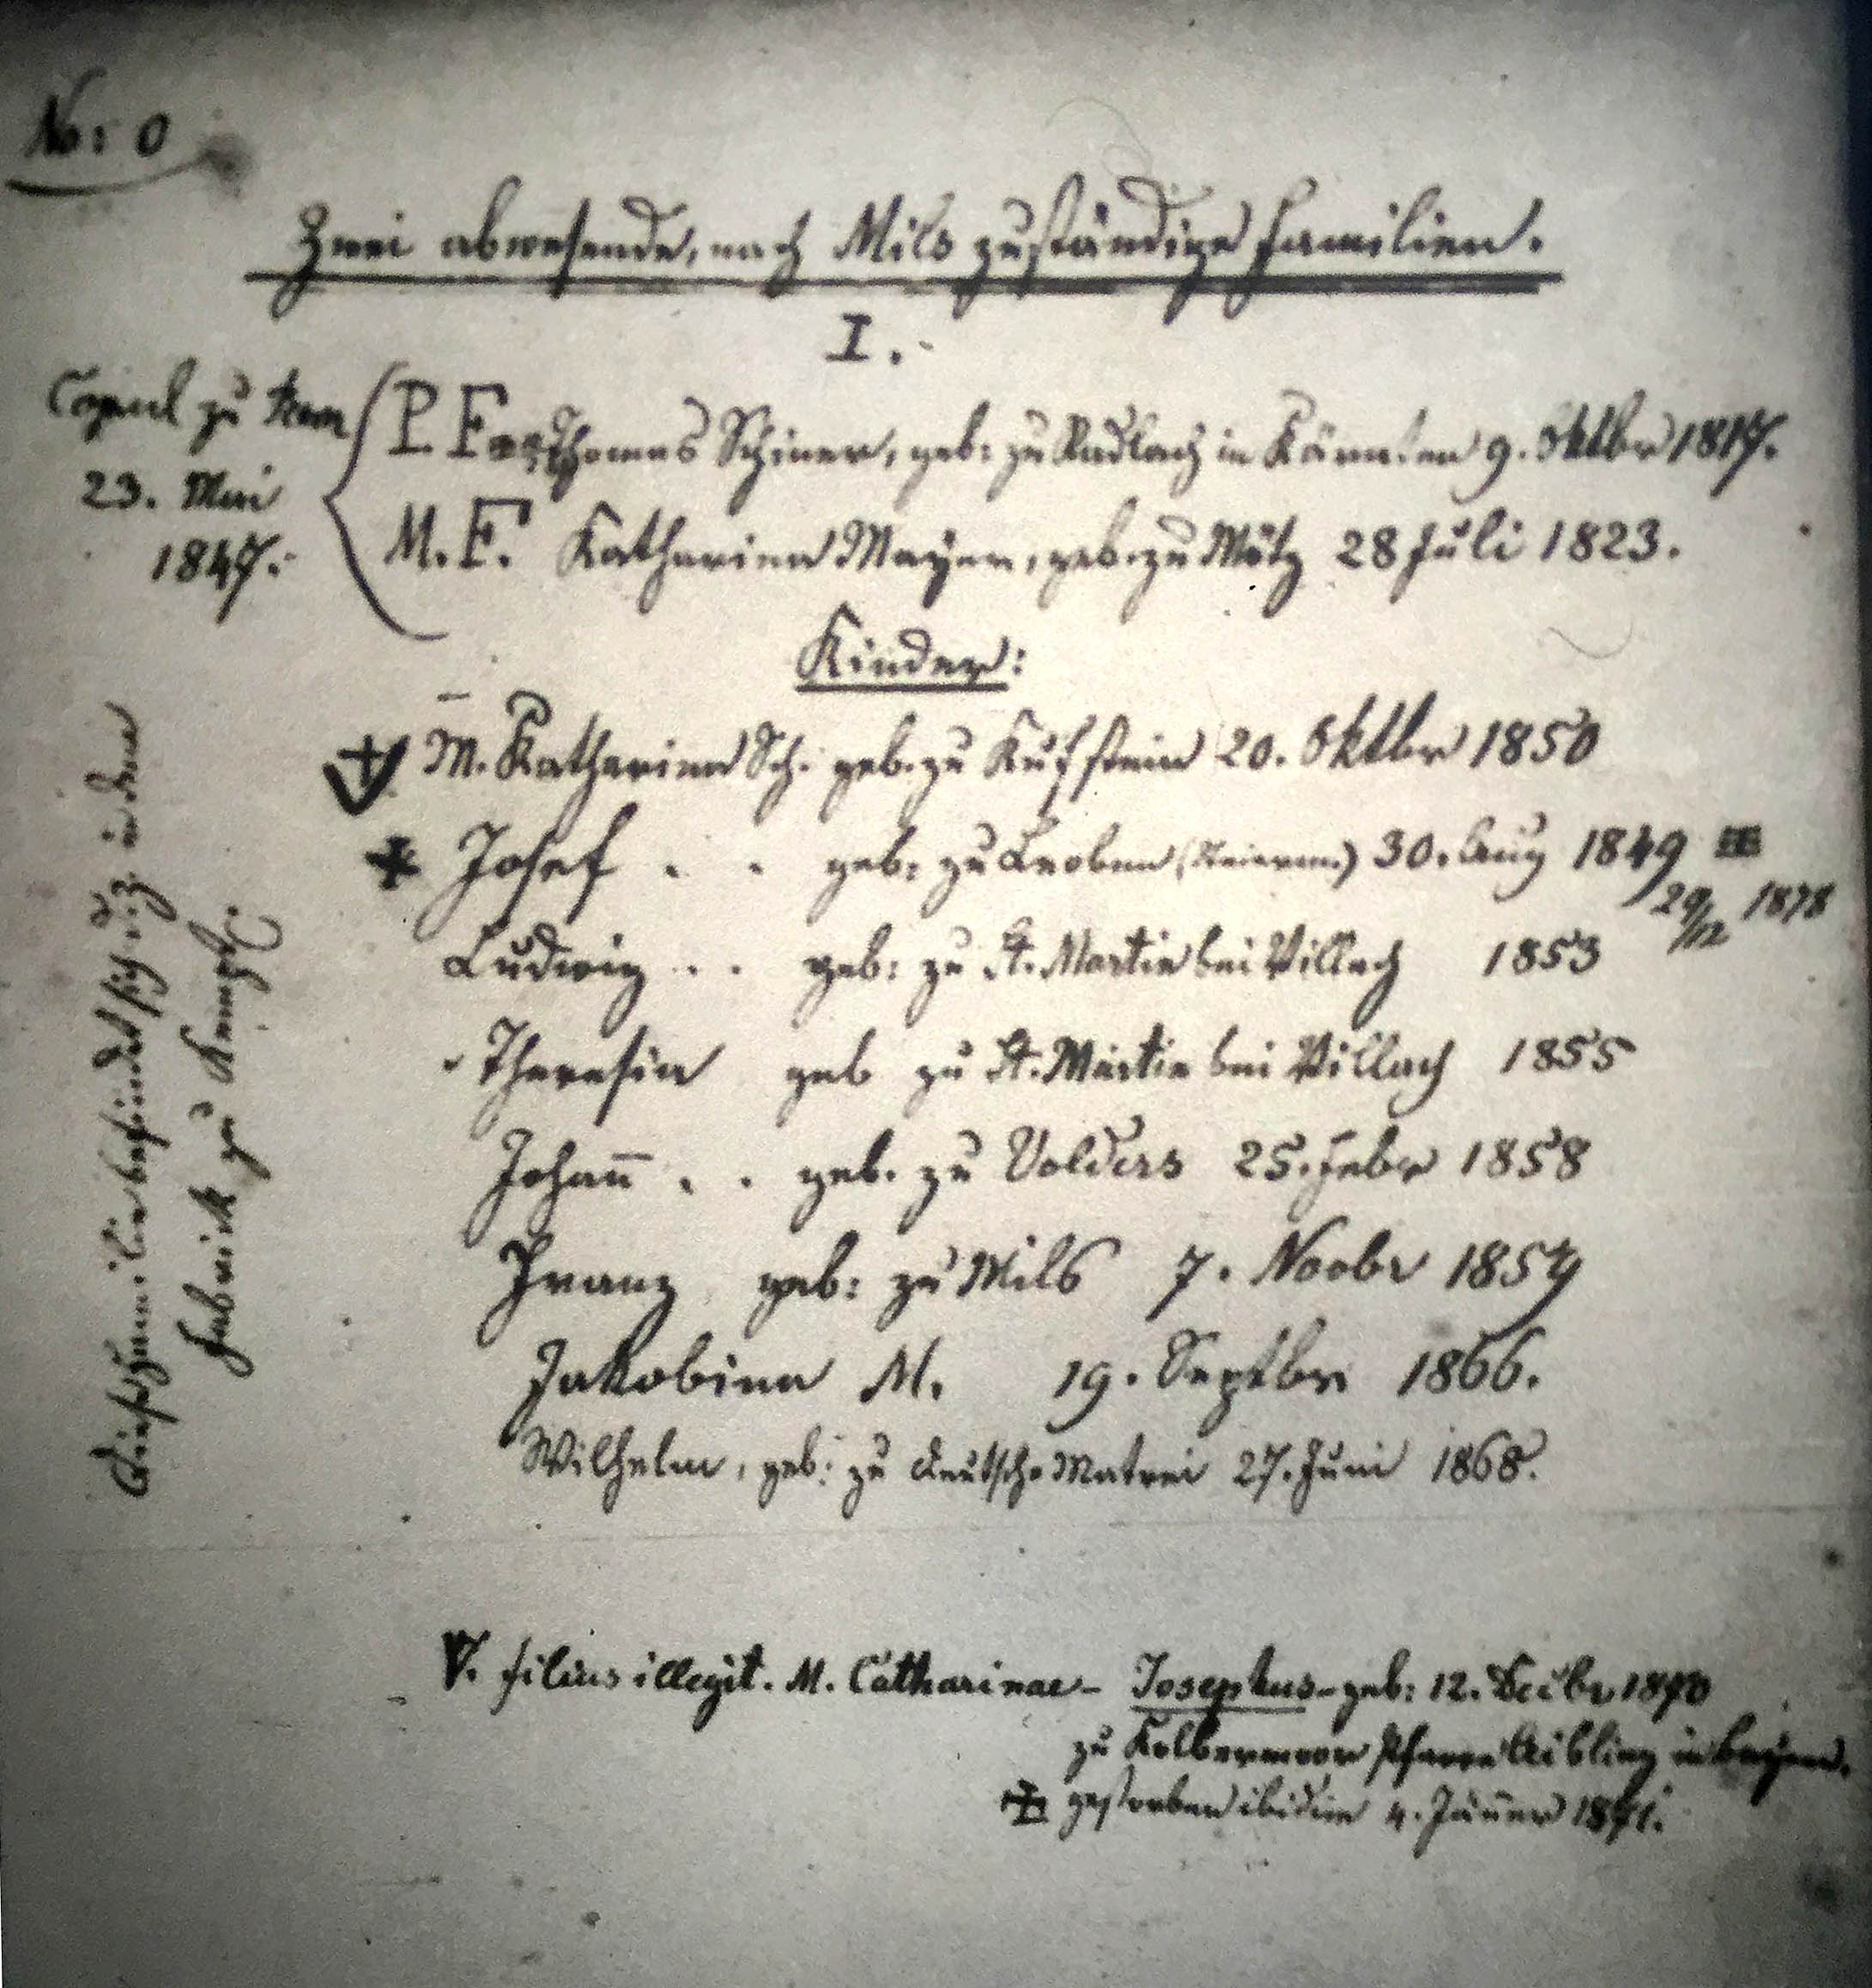 No: 0
Zwei abwesende, nach Mils zuständige Familien.
I.
Copul zu
23. Mai
1847.
P. F. Thomas Schiner, geb: zu Radlach in Kärnten 9. Oktbr 1817.
M. F. Katharina Mayer, geb. zu Mötz 28 Juli 1823.
Kinder:
M. Katharina Sch. geb. zu Kufstein 20. Oktbr 1850
Josef . . geb: zu Leoben (Steierm.) 30. Aug 1849
29/12 1878
Ludwig . . geb: zu St. Martin bei Villach 1853
Theresia geb zu St. Martin bei Villach 1855
Johan̅ . . geb. zu Volders 25. Febr 1858
Franz geb: zu Mils 7. Novbr 1859
Jakobina M. 19. Septbr 1866.
Wilhelm, geb: zu deutsch Matrei 27. Juni 1868.
Diese Familie befindet sich izt in der
Fabrick zu
V. filius illegit. M. Catharinae - Josephus - geb: 12. Decbr 1870
zu Kolbermoor Pfarre Aibling in Bayern.
gestorben ibidem 4. Jäner 1871.